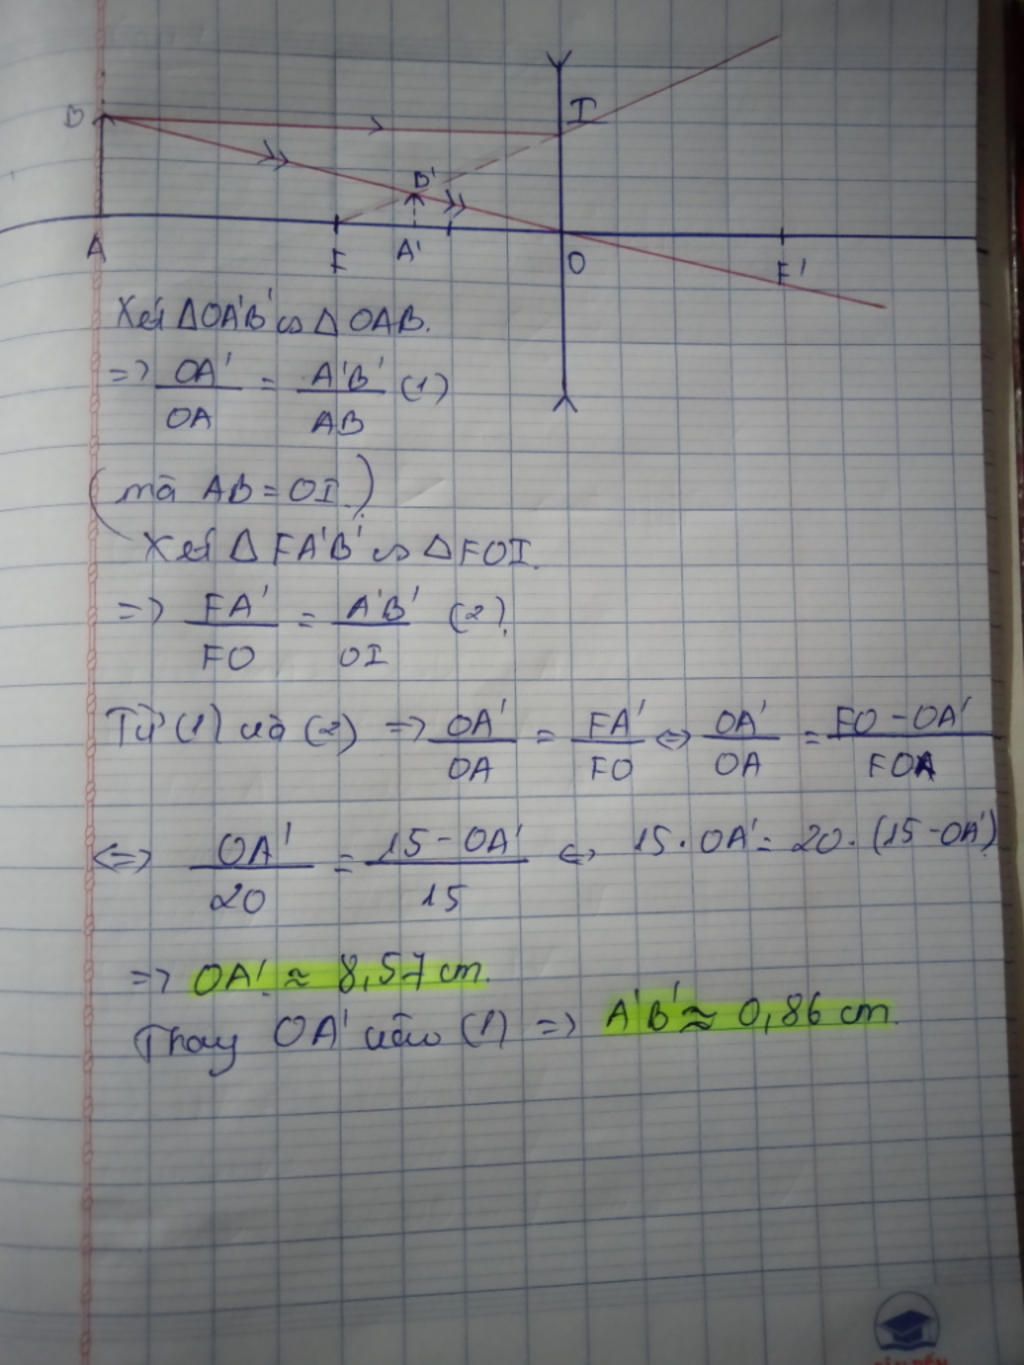 B
I
B'
A
F
A'
O
F'
Xét ΔOA'B' ∽ ΔOAB.
=> OA'/OA = A'B'/AB (1)
(mà AB = OI)
Xét ΔFA'B' ∽ ΔFOI.
=> FA'/FO = A'B'/OI (2).
Từ (1) và (2) => OA'/OA = FA'/FO <=> OA'/OA = FO - OA'/FO
<=> OA'/20 = 15 - OA'/15 <=> 15. OA' = 20. (15 - OA')
=> OA' ≈ 8,57 cm.
Thay OA' vào (1) => A'B' ≈ 0,86 cm.